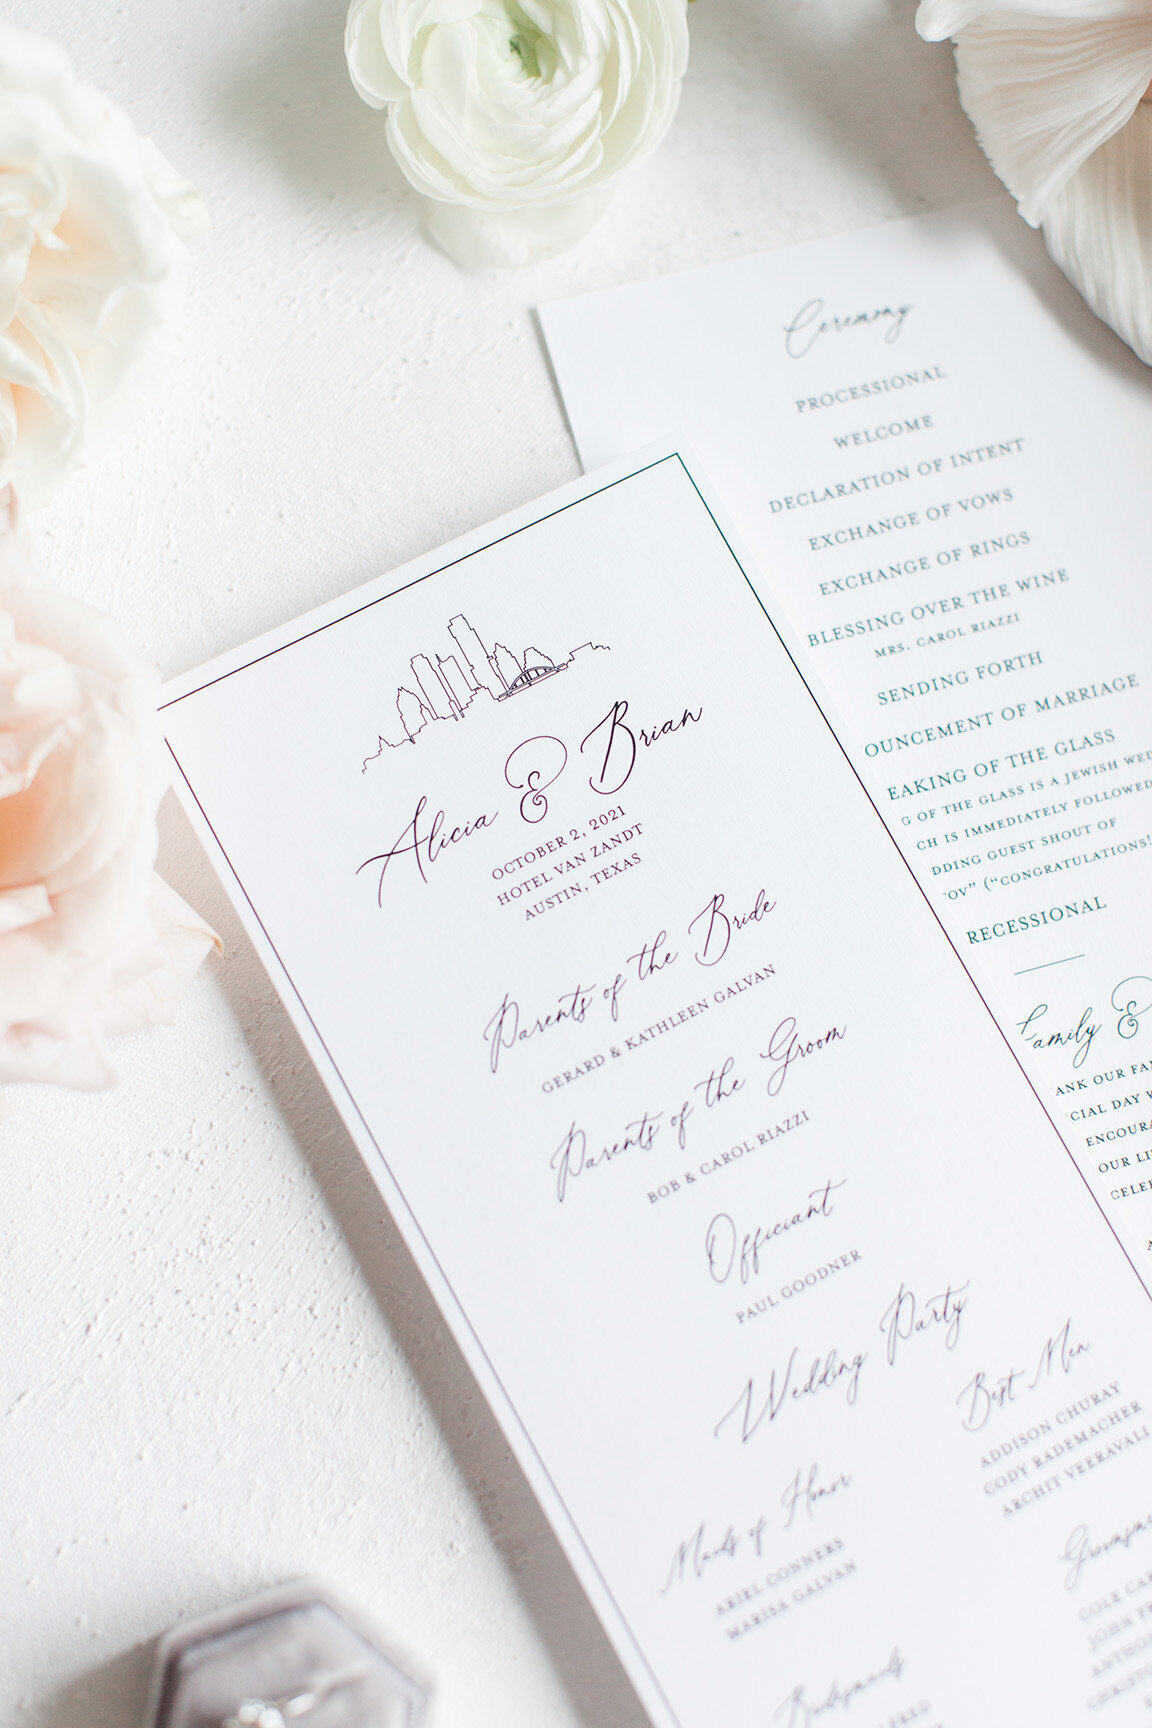 Alicia & Brian
OCTOBER 2, 2021
HOTEL VAN ZANDT
AUSTIN, TEXAS
Parents of the Bride
GERARD & KATHLEEN GALVAN
Parents of the Groom
BOB & CAROL RIAZZI
Officiant
PAUL GOODNER
Wedding Party
Maids of Honor
ARIEL CONNERS
MARISA GALVAN
Bridesmaids
Best Men
ADDISON CHURAY
CODY RADEMACHER
ARCHIT VEERAVALI
Groomsme
COLE CAR
JOHN FR
ANTHON
CHRISTO
Ceremony
PROCESSIONAL
WELCOME
DECLARATION OF INTENT
EXCHANGE OF VOWS
EXCHANGE OF RINGS
BLESSING OVER THE WINE
MRS. CAROL RIAZZI
SENDING FORTH
OUNCEMENT OF MARRIAGE
EAKING OF THE GLASS
G OF THE GLASS IS A JEWISH WED
CH IS IMMEDIATELY FOLLOWED
DDING GUEST SHOUT OF
OV" ("CONGRATULATIONS!
RECESSIONAL
Family &
ANK OUR FA
CIAL DAY W
ENCOURA
OUR LI
CELE